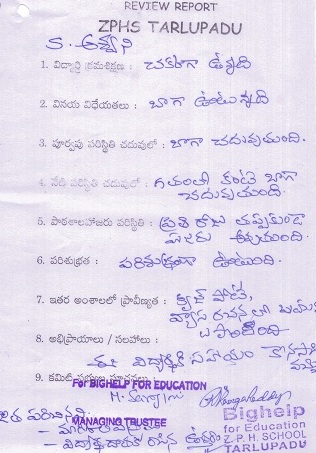 REVIEW REPORT
ZPHS TARLUPADU
S. అశ్వని
1. విద్యార్థి క్రమశిక్షణ : చక్కగా ఉన్నది
2. వినయ విధేయతలు : బాగా ఉంటున్నది
3. పూర్వపు పరిస్థితి చదువులో : బాగా చదువుతుంది.
4. నేటి పరిస్థితి చదువులో : గతంలో కంటే బాగా
చదువుతుంది.
5. పాఠశాలహాజరు పరిస్థితి : ప్రతి రోజు తప్పకుండా
హాజరు అవుతుంది.
6. పరిశుభ్రత : పరిశుభ్రంగా ఉంటుంది.
7. ఇతర అంశాలలో ప్రావీణ్యత : క్విజ్ పోటీ,
వ్యాస రచనలలో
8. అభిప్రాయాలు / సలహాలు :
ఈ విద్యార్థికి సహాయం
9. కమిటీ
For BIGHELP FOR EDUCATION
MANAGING TRUSTEE
Bighelp
for Education
Z.P.H. SCHOOL
TARLUPADU